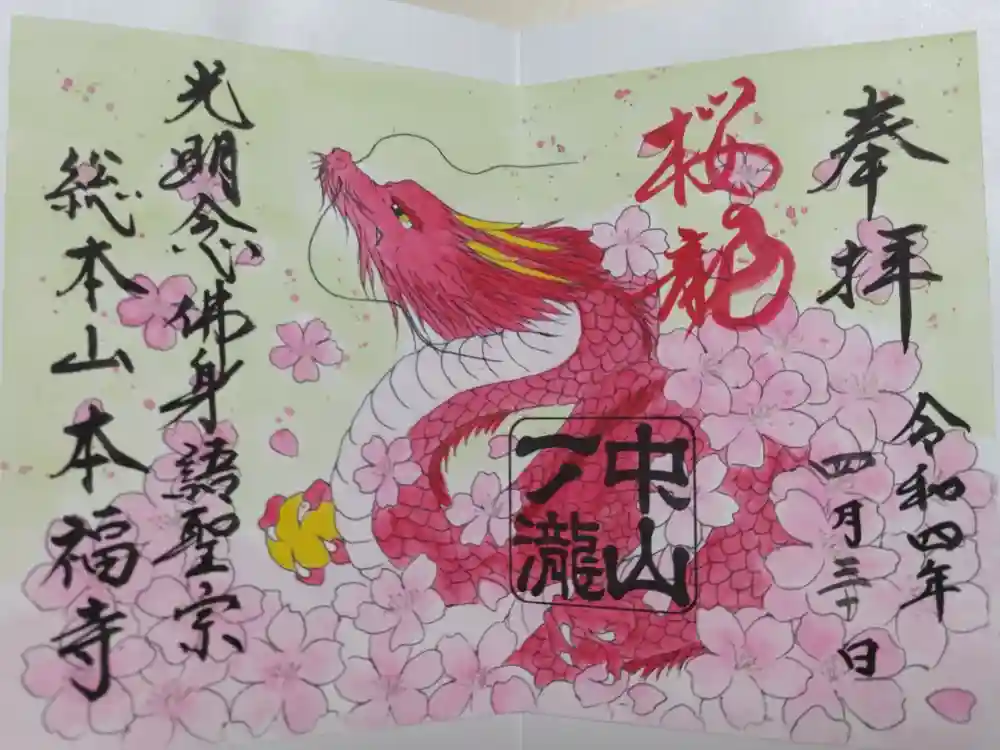 奉拝
令和四年
四月三十日
桜龍
中山
一ノ瀧
光明念佛身語聖宗
総本山本福寺